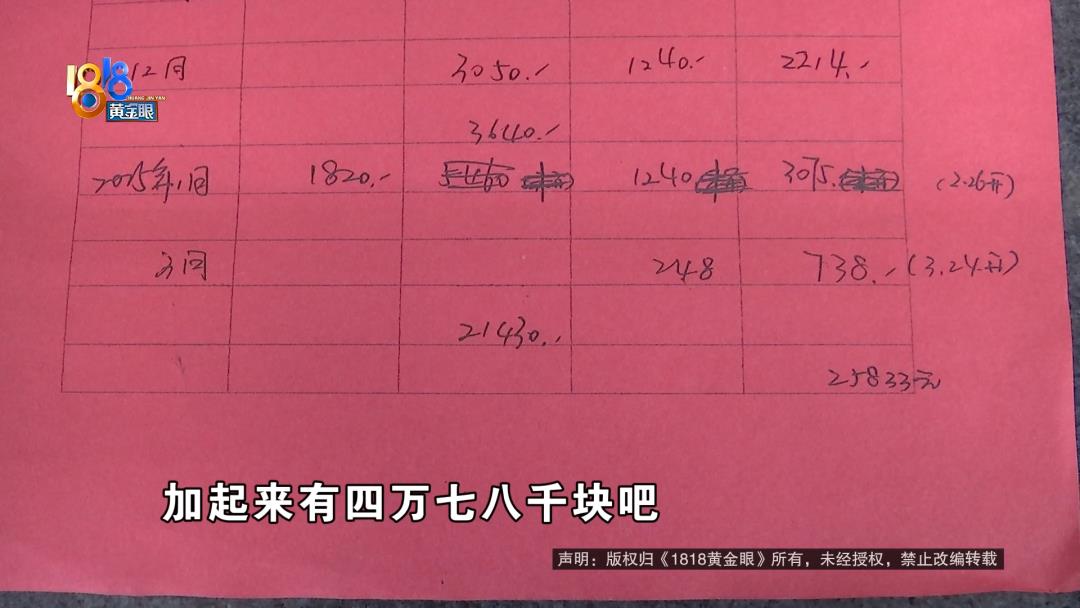 1818
HUANG JIN YAN
黄金眼
12月 3050.- 1240.- 2214.-
3640.-
2025年1月 1820.- 1240 3075. (2.26开)
3月 248 738.- (3.24开)
21430.-
25833元
加起来有四万七八千块吧
声明：版权归《1818黄金眼》所有，未经授权，禁止改编转载